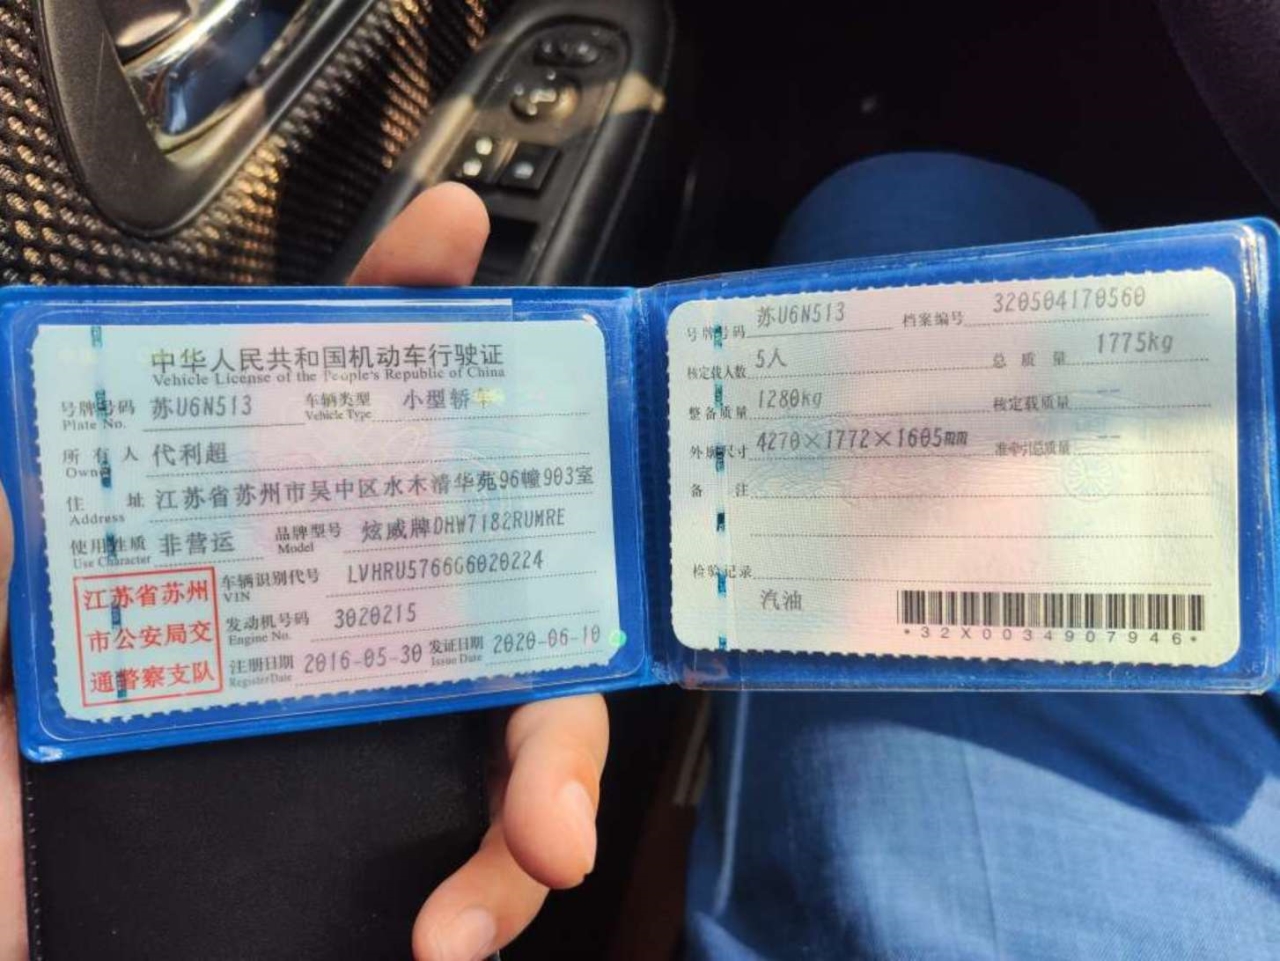 中华人民共和国机动车行驶证
Vehicle License of the People's Republic of China
号牌号码 苏U6N513 车辆类型 小型轿车
Plate No. Vehicle Type
所有人 代利超
Owner
住址 江苏省苏州市吴中区水木清华苑96幢903室
Address
使用性质 非营运 品牌型号 炫威牌DHW7182RUMRE
Use Character Model
江苏省苏州
市公安局交
通警察支队
车辆识别代号 LVHRU5766G6020224
VIN
发动机号码 3020215
Engine No.
注册日期 2016-05-30 发证日期 2020-06-10
Register Date Issue Date
号牌号码 苏U6N513 档案编号 320504170560
核定载人数 5人 总质量 1775kg
整备质量 1280kg 核定载质量 --
外廓尺寸 4270×1772×1605mm 准牵引总质量 --
备注
检验记录
汽油
*32X0034907946*